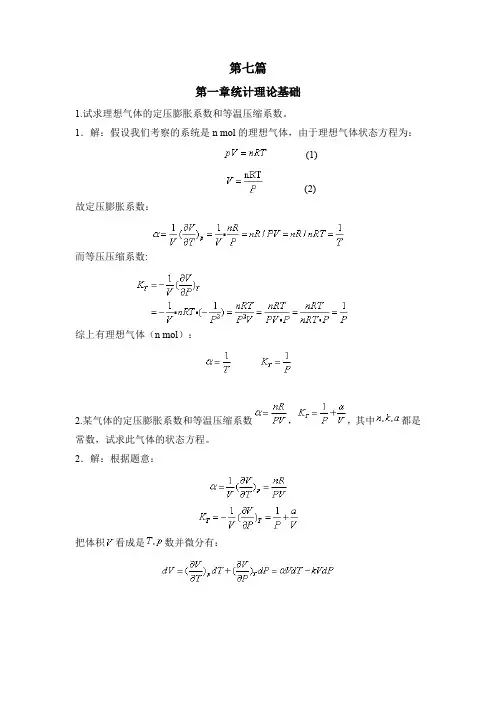 第七篇
第一章统计理论基础
1.试求理想气体的定压膨胀系数和等温压缩系数。
1．解：假设我们考察的系统是 n mol 的理想气体，由于理想气体状态方程为：
pV = nRT (1)
V = nRT/P (2)
故定压膨胀系数：
α = 1/V (∂V/∂T)_p = 1/V • nR/P = nR/PV = nR/nRT = 1/T
而等压压缩系数:
K_T = −1/V (∂V/∂P)_T
= −1/V • nRT • (−1/P²) = nRT/P²V = nRT/PV•P = nRT/nRT•P = 1/P
综上有理想气体（n mol）：
α = 1/T K_T = 1/P
2.某气体的定压膨胀系数和等温压缩系数 α = nR/PV， K_T = 1/P + a/V，其中 n, k, a 都是
常数，试求此气体的状态方程。
2．解：根据题意：
α = 1/V (∂V/∂T)_p = nR/PV
K_T = −1/V (∂V/∂P)_T = 1/P + a/V
把体积 V 看成是 T, p 数并微分有：
dV = (∂V/∂T)_p dT + (∂V/∂P)_T dP = αVdT − kVdP